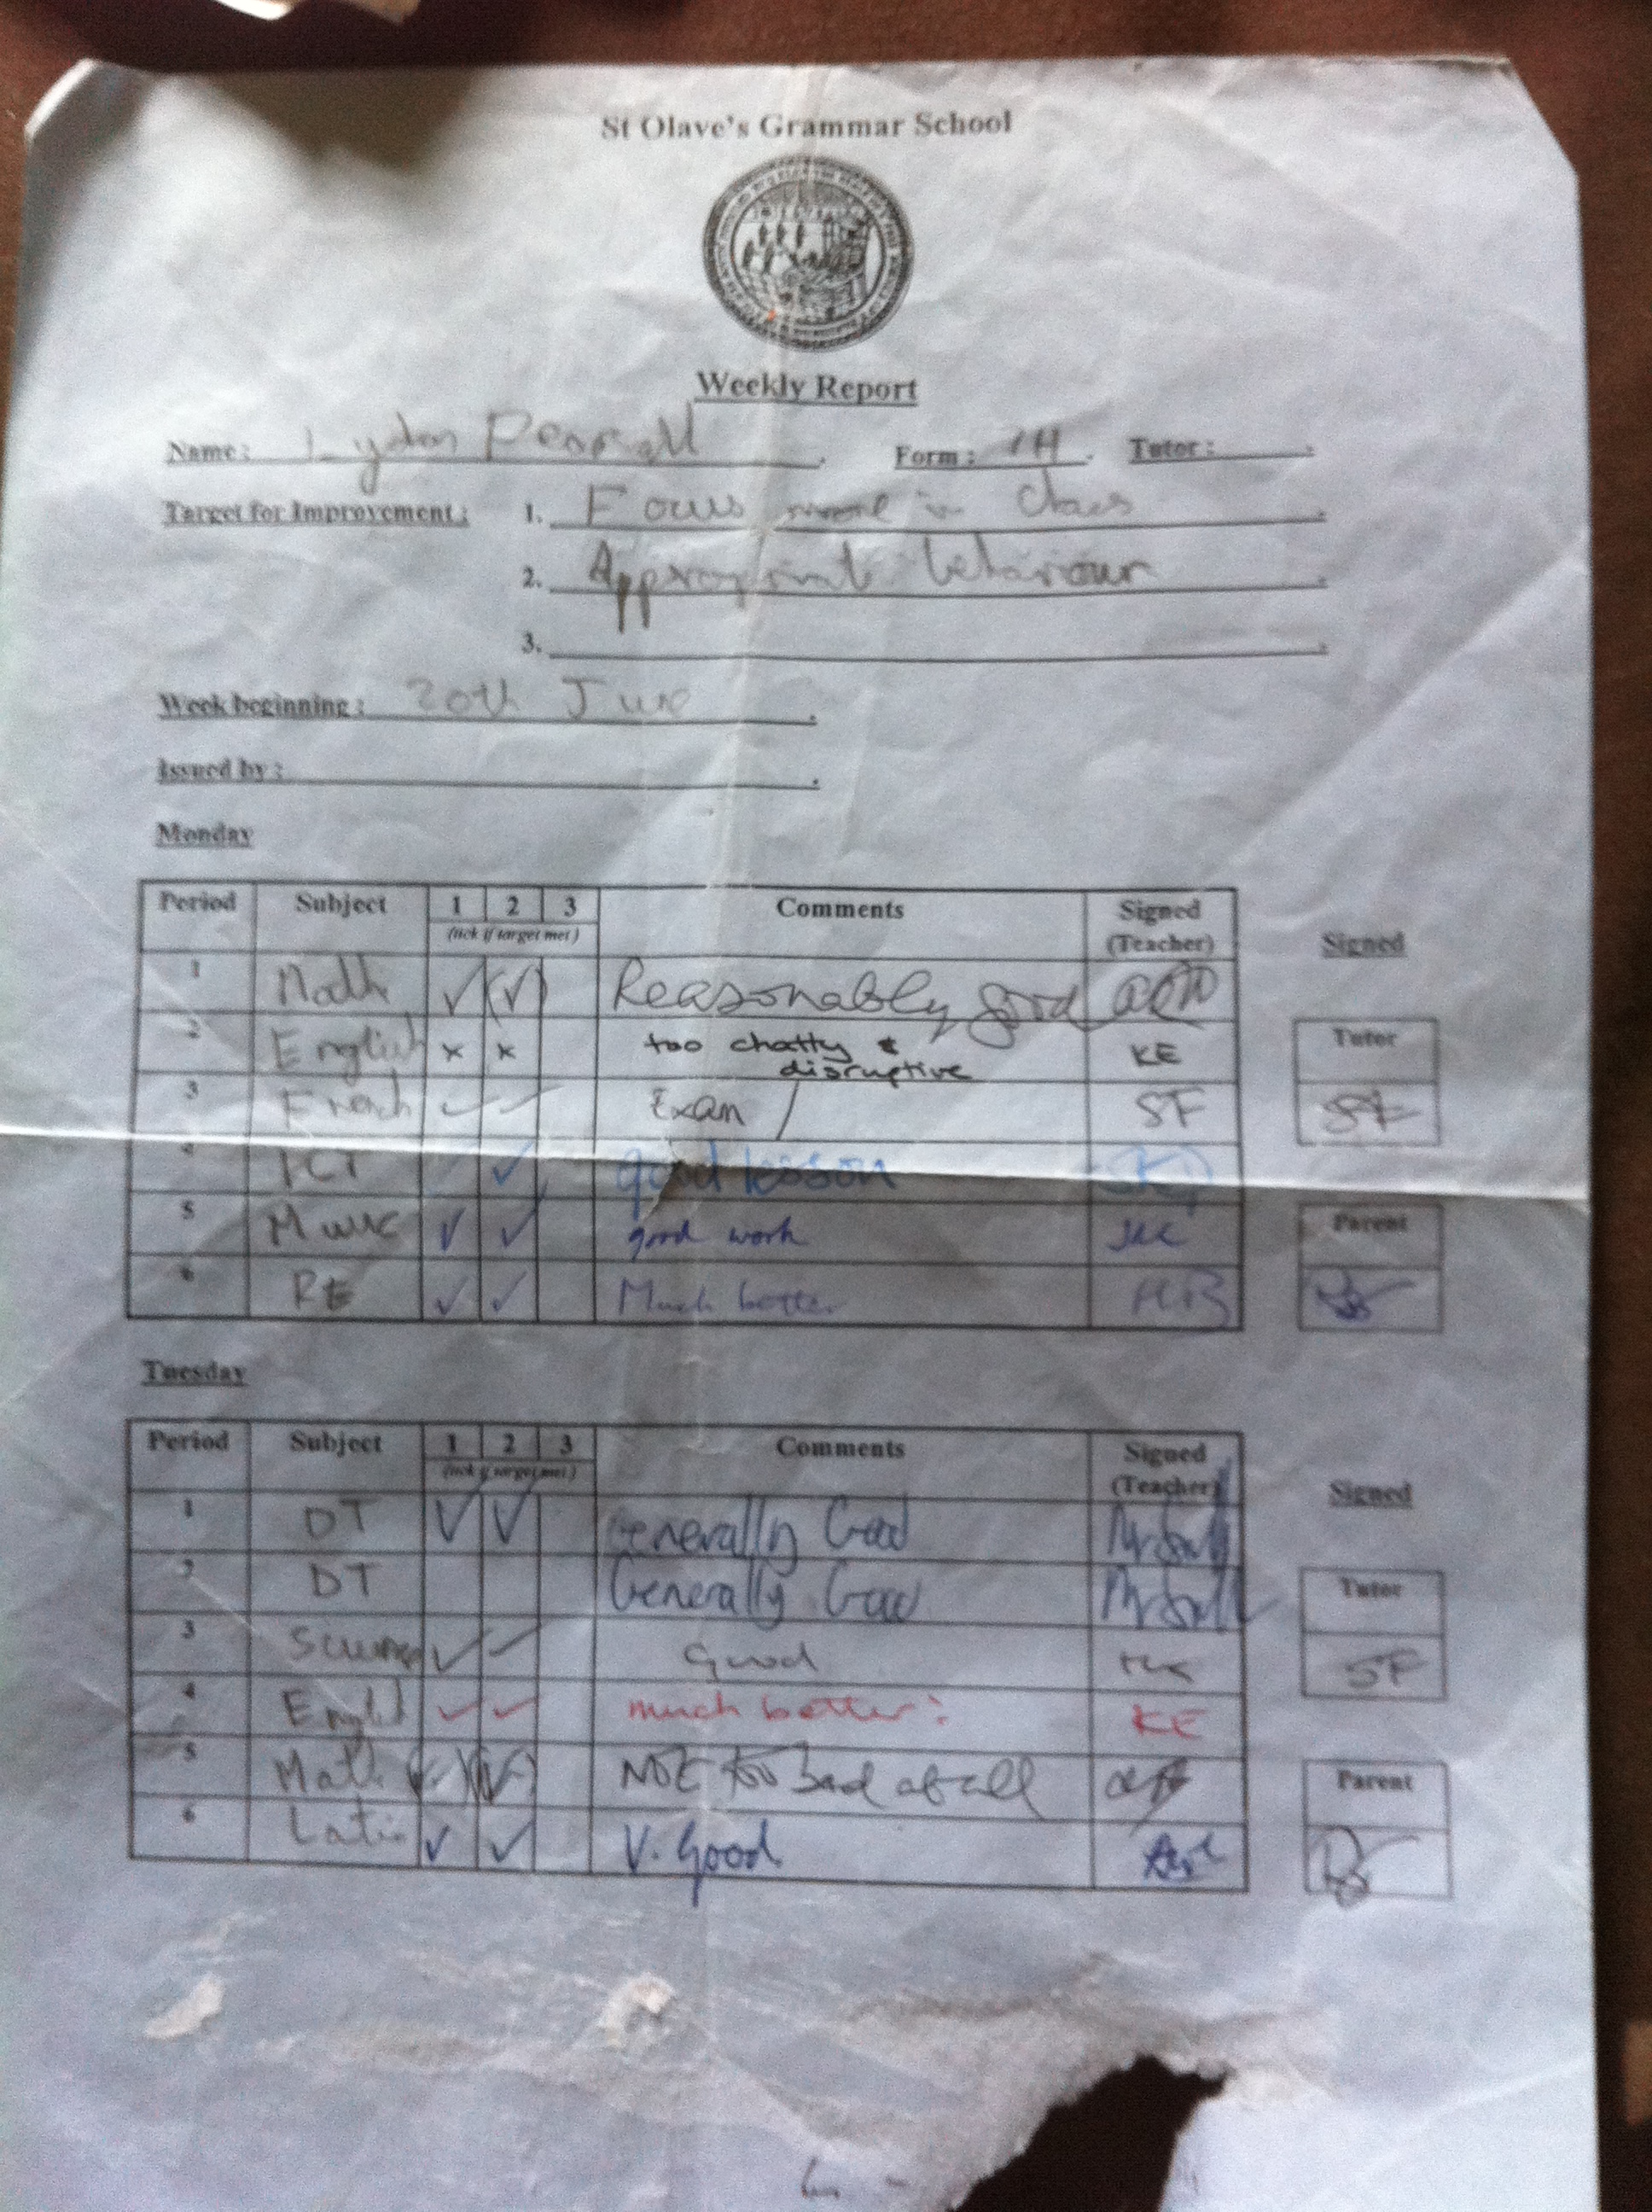 St Olave's Grammar School
Weekly Report
Name: Form: Tutor:
Target for Improvement: 1. Focus more in class
2. Appropriate behaviour
3.
Week beginning: 20th June
Issued by:
Monday
Period Subject 1 2 3 Comments Signed (Teacher)
(tick if target met)
Signed
1 Maths ✓ (✓) Reasonably good
2 English × × too chatty & disruptive KE
Tutor
3 French ✓ ✓ Exam / SF
SF
4 ICT ✓ ✓ good lesson
5 Music ✓ ✓ good work
Parent
6 RE ✓ ✓ Much better HB
Tuesday
Period Subject 1 2 3 Comments Signed (Teacher)
(tick if target met)
Signed
1 DT ✓ ✓ Generally Good
2 DT Generally Good
Tutor
3 Science ✓ ✓ Good
SF
4 English ✓ ✓ much better: KE
5 Maths (✓) (✓) Not too bad at all
Parent
6 Latin ✓ ✓ V. Good